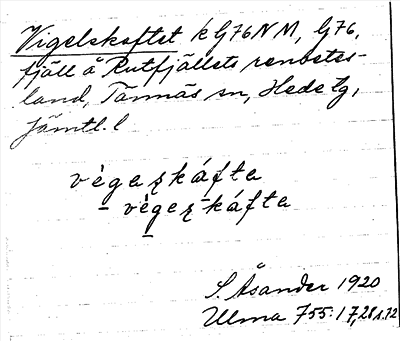 Vigelskaftet k G76NM, G76,
fjäll å Rutfjällets renbetes-
land, Tännäs sn, Hede tg,
Jämtl. l
vègaʂkáfta
- vègeʂ-káfta
S. Åsander 1920
Ulma 755:17, 28 s. 12